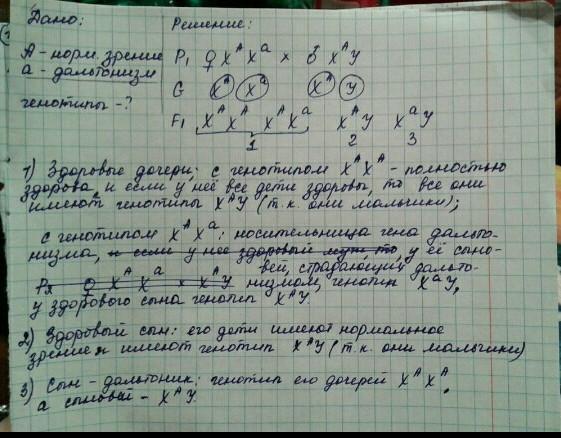 Дано: Решение:
А - норм. зрение P₁ ♀ XᴬXᵃ × ♂ XᴬY
а - дальтонизм
G Xᴬ Xᵃ Xᴬ Y
генотипы - ?
F₁ XᴬXᴬ XᴬXᵃ XᴬY XᵃY
1 2 3
1) Здоровые дочери: с генотипом XᴬXᴬ - полностью
здорова, и если у неё все дети здоровы, то все они
имеют генотипы XᴬY (т.к. они мальчики);
с генотипом XᴬXᵃ: носительница гена дальто-
низма, и если у неё здоровый муж, то, у её сыно-
вей, страдающих дальто-
P₂ ♀ XᴬXᵃ × XᴬY низмом, генотип XᵃY,
у здорового сына генотип XᴬY.
2) Здоровый сын: его дети имеют нормальное
зрение и имеют генотип XᴬY (т.к. они мальчики)
3) Сын - дальтоник: генотип его дочерей XᴬXᴬ,
а сыновей - XᴬY.